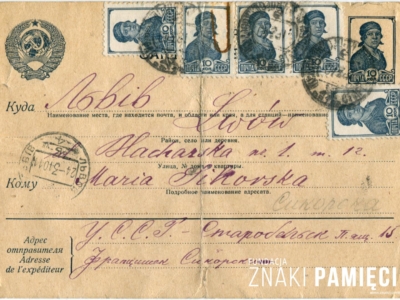 Куда Львів Lwów
Наименование места, где находится почта, и области или края, а для станций — наименование
Район, село или деревня.
Hlacharska n. 1. m. 12.
Улица, № дома, квартиры.
Кому Maria Sikorska
Подробное наименование адресата.
Адрес отправителя
Adresse de l'expéditeur
У.С.С.Р - Старобельск п. ящ. 15
Францишек Сикорский
FUNDACJA
ZNAKI PAMIĘCI